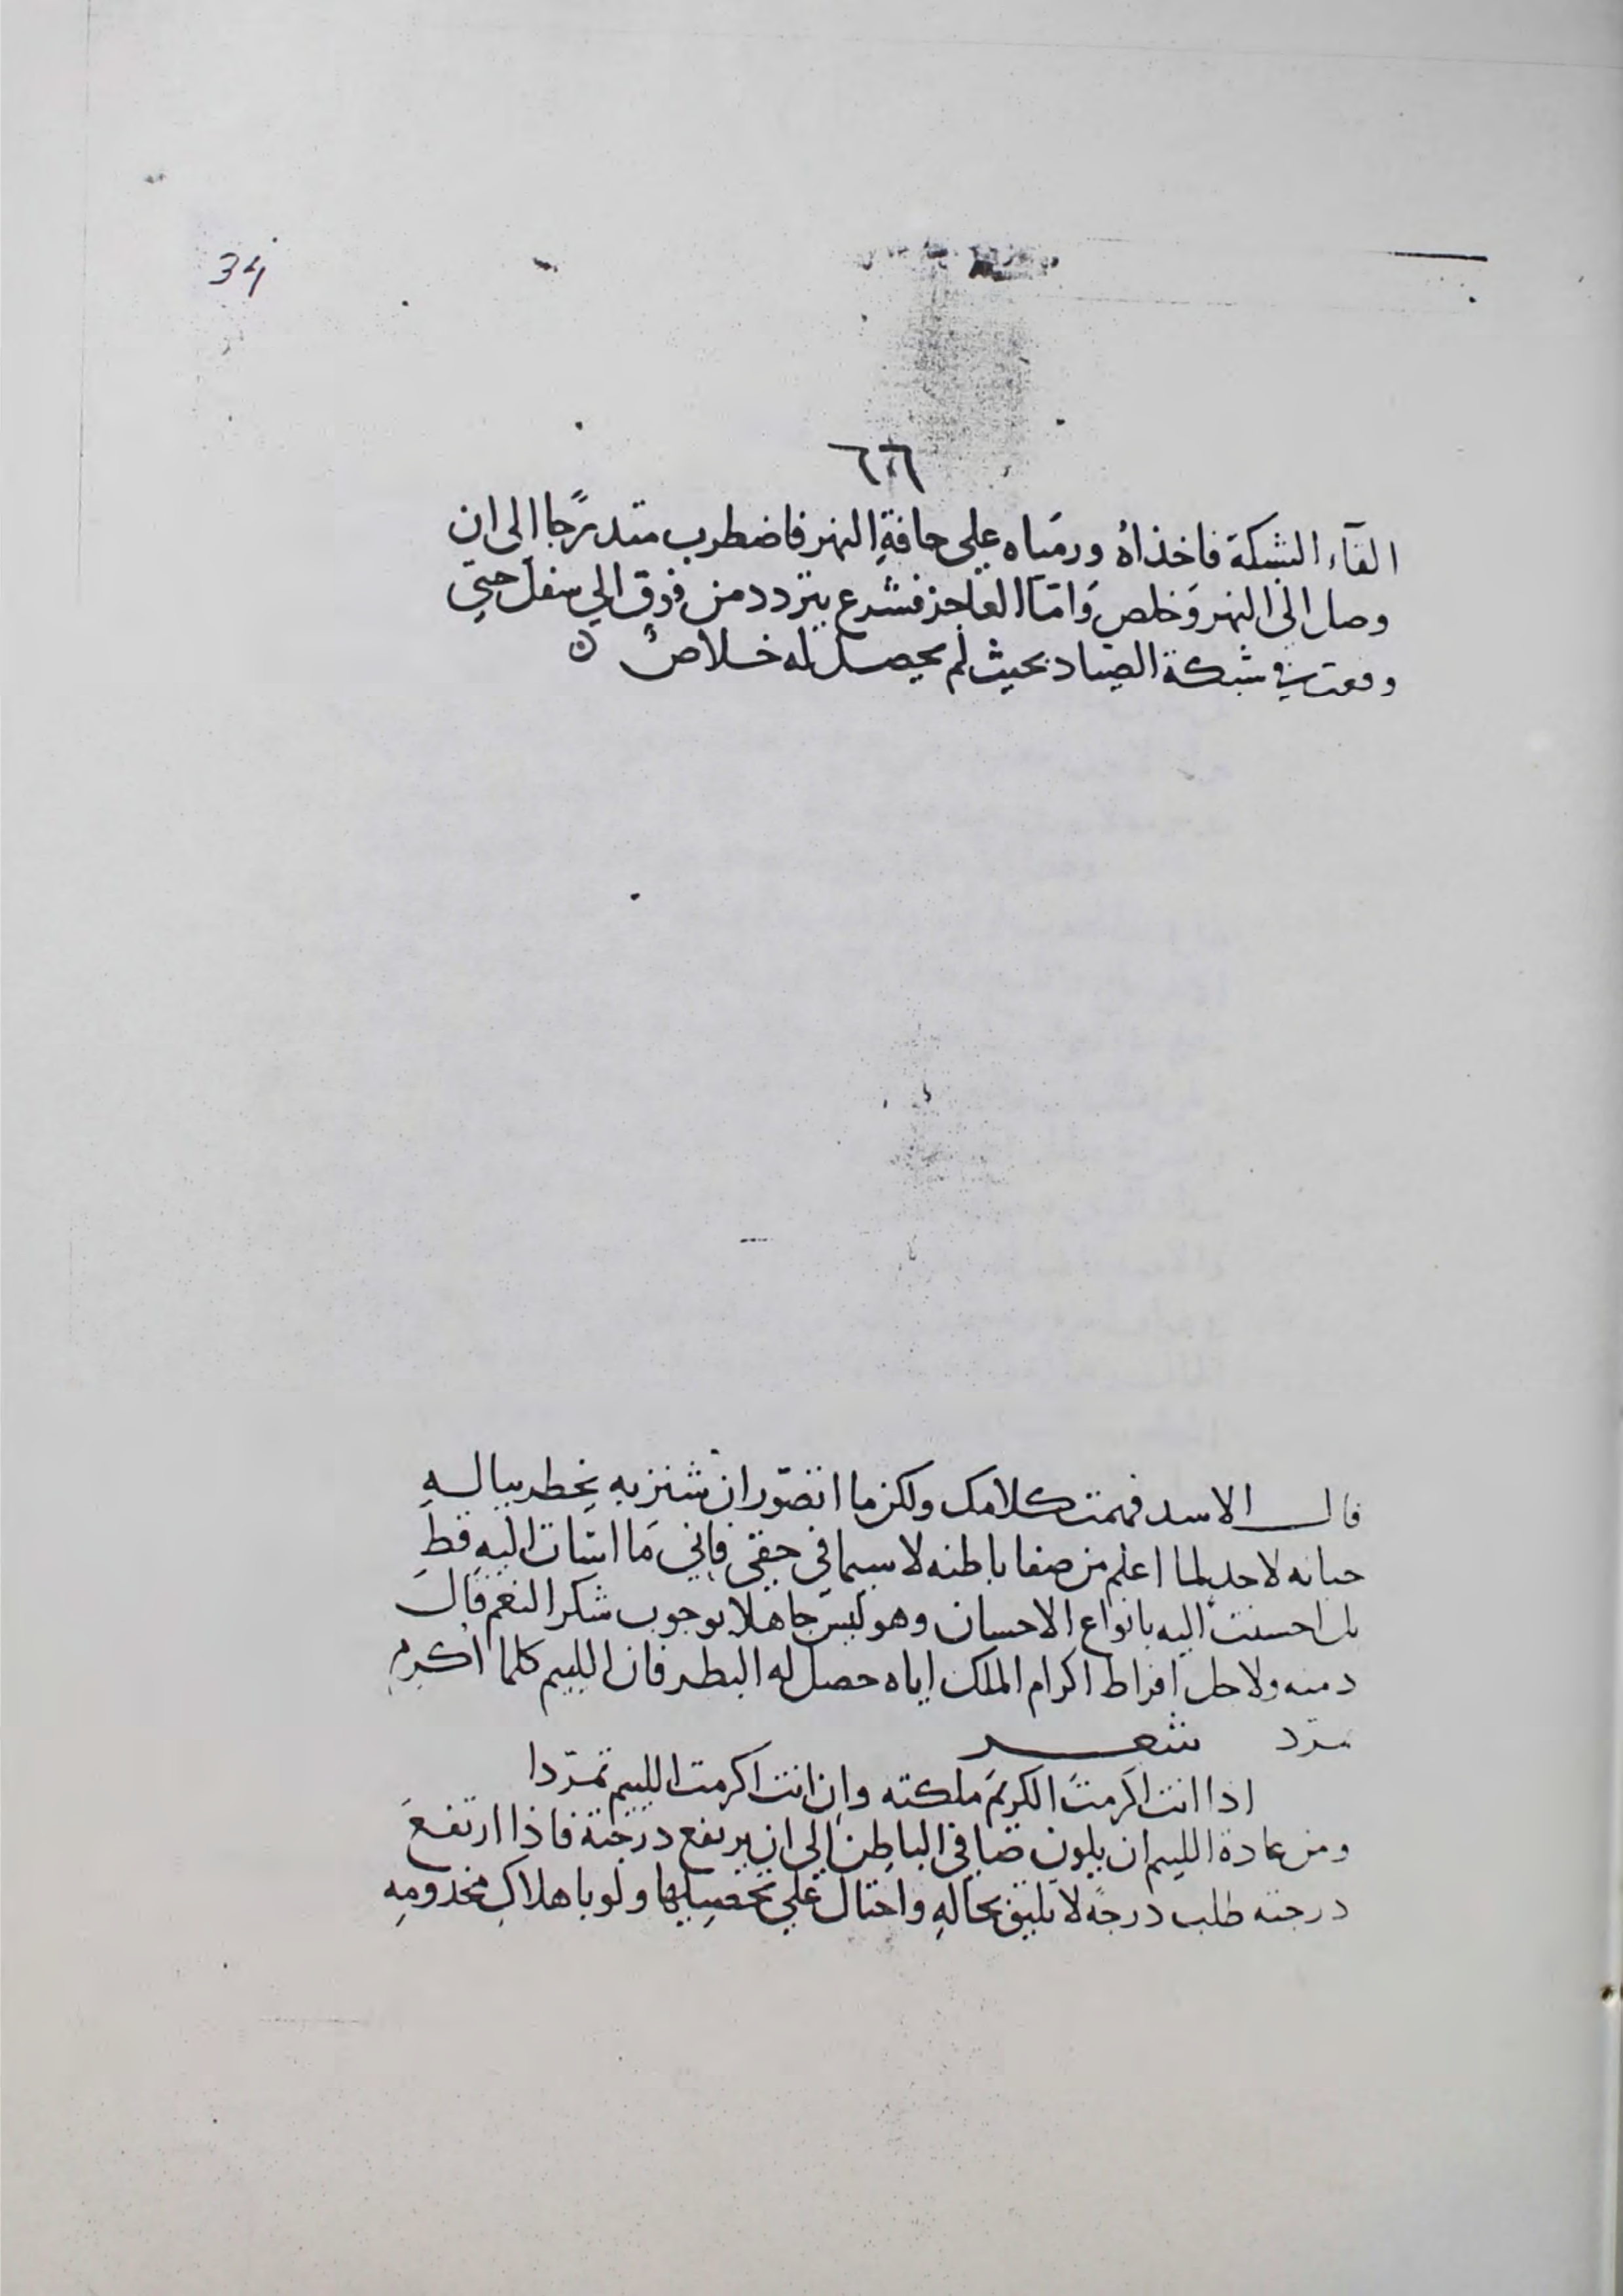 34
٦٦
القآء الشبكة فاخذاهُ ورمَياه على حافةِ النهر فاضطرب متدرّجًا الى ان
وصل الى النهر وَخلص وَامّا العاجز فشرع يتردد من فوق الي سفل حتي
وقعت في شبكة الصياد بحيث لم يحصل له خلاصٌ
قال الاسد فهمت كلامك ولكن ما اتصوّر ان شنزبه يخطر ببالهِ
خيانه لاحد لما اعلم من صفا باطنه لا سيما في حقي فاني مَا اسَات اليهِ قط
بل احسنت اليه بانواع الاحسان وهو ليسَ جاهلا بوجوب شكر النعم قالَ
دمنه ولاجل افراط اكرام الملك اياه حصل له البطر فان اللييم كلما اكرم
تمرّد شعر
اذا انت اكرمتَ الكريم ملكته وان انت اكرمت اللييم تمرّدا
ومن عادة اللييم ان يكون صافي الباطن الى ان يرتفع درجته فاذا ارتفعَ
درجته طلب درجةً لا تليق بحالهِ واحتال علي تحصيلها ولو باهلاكِ مخدومهِ